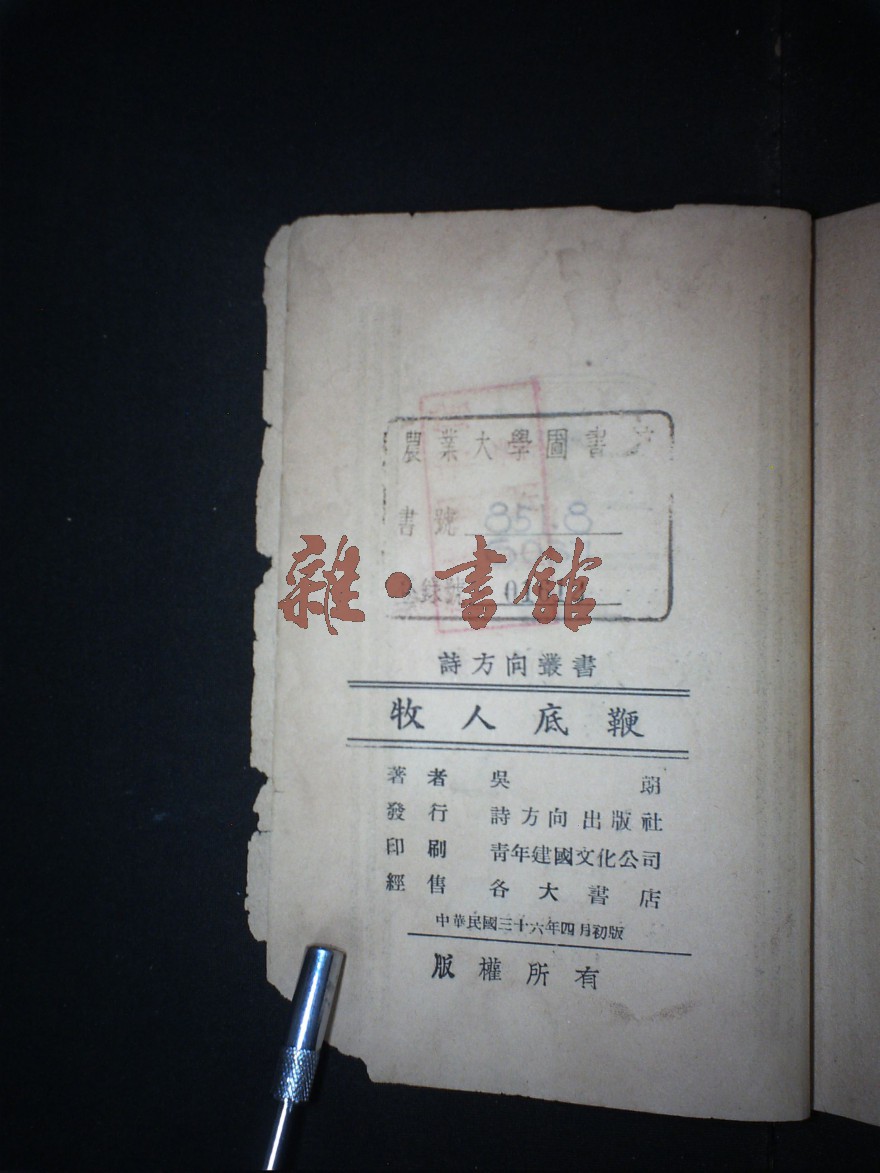 農業大學圖書
書號 851.8
雜·書館
詩方向叢書
牧人底鞭
著者 吳朗
發行 詩方向出版社
印刷 青年建國文化公司
經售 各大書店
中華民國三十六年四月初版
版權所有